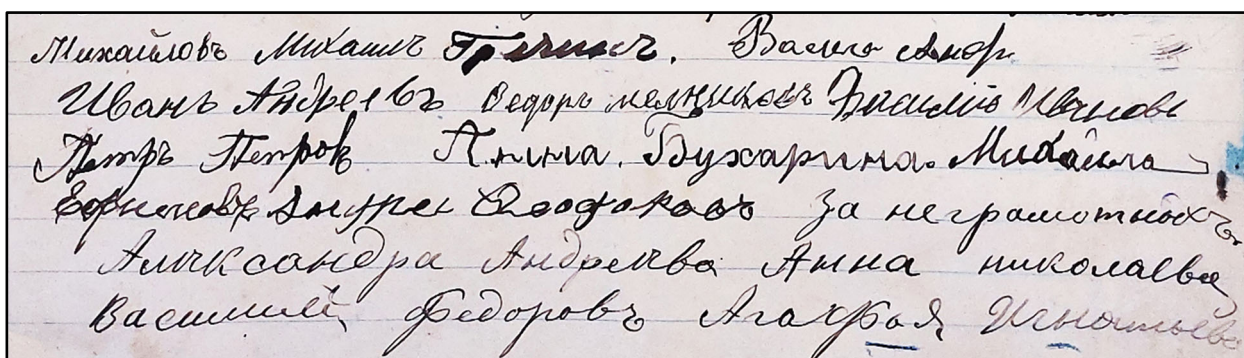 Михайловъ Михаилъ Гречинъ. Василь Андр.
Иванъ Андреевъ Ѳедоръ мелниковъ Василий Ивановъ
Петръ Петров Анна. Бухарина. Михаила
Ефимовъ Андрей за неграмотныхъ
Алексаndра Андреева Анна николаева
Василий Федоровъ Агафья Игнатьева